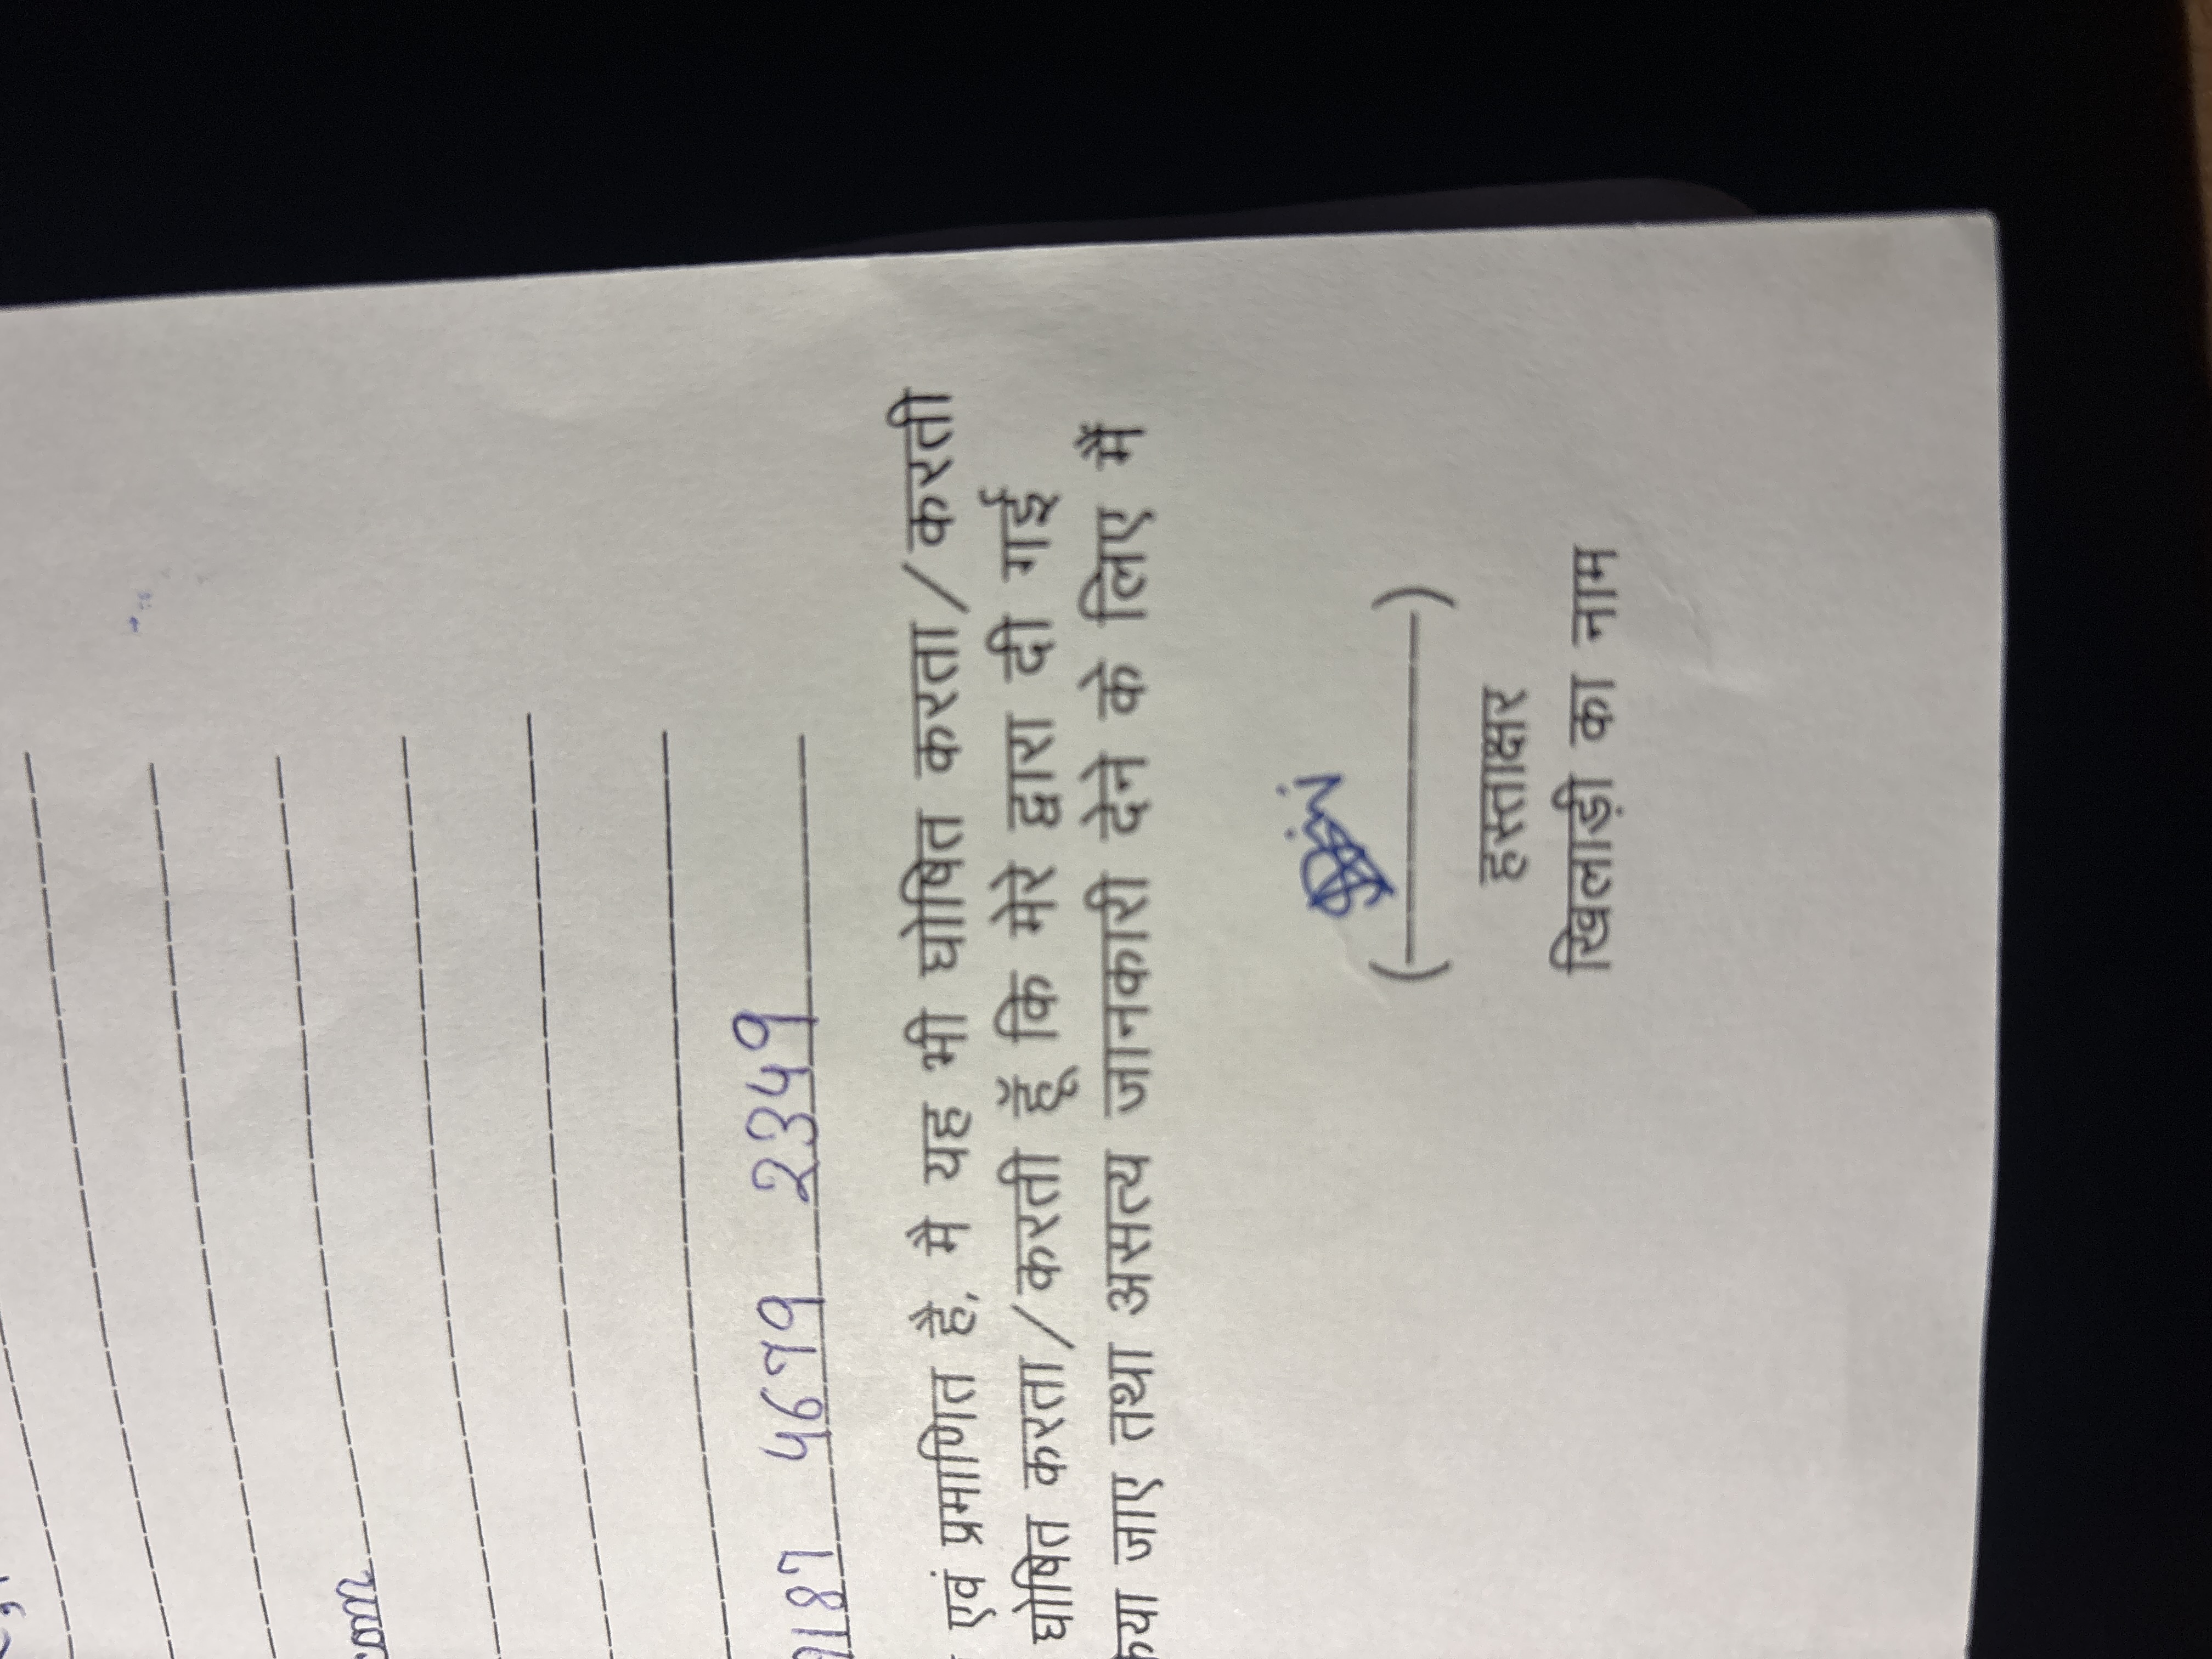 9187 4679 2349
एवं प्रमाणित है, मै यह भी घोषित करता/करती
घोषित करता/करती हूँ कि मेरे द्वारा दी गाई
जाए तथा असत्य जानकारी देने के लिए मैं
(————)
हस्ताक्षर
खिलाड़ी का नाम